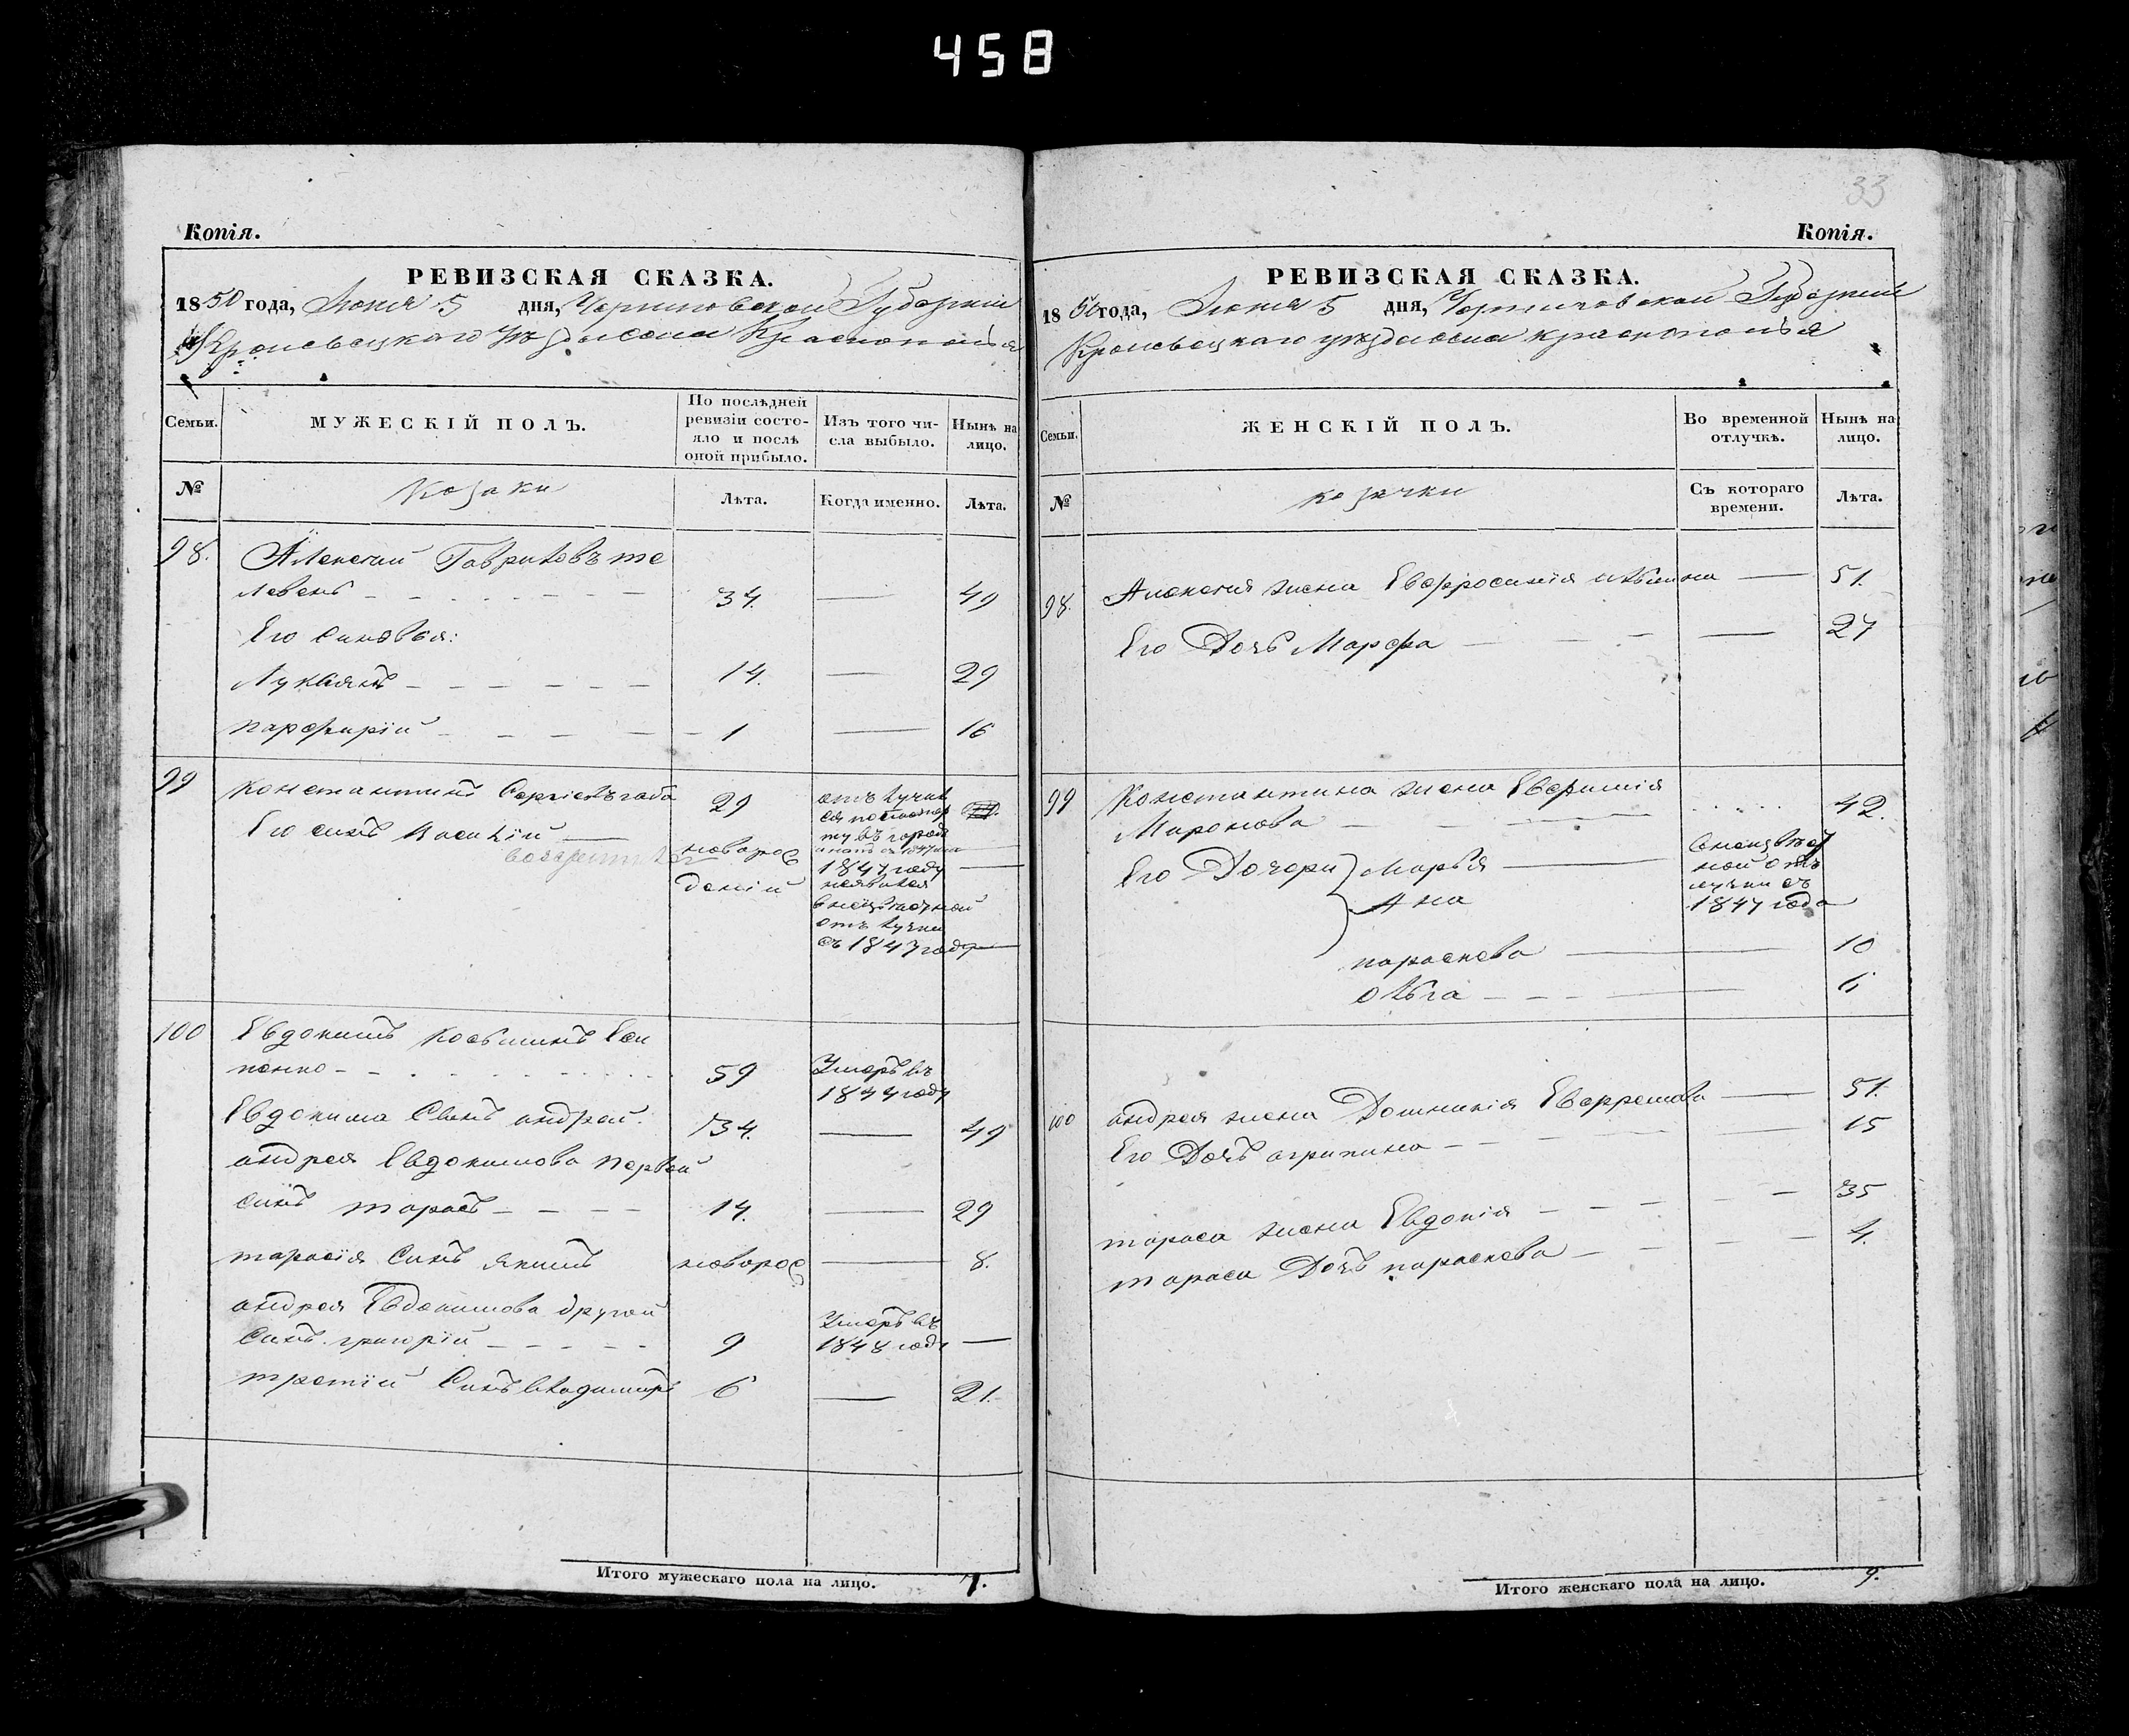 458
33
Копія.
РЕВИЗСКАЯ СКАЗКА.
1850 года, Июня 5 дня, Черниговской Губерніи
Кролевецкаго Уѣзда села Краснополья
Семьи.
МУЖЕСКІЙ ПОЛЪ.
По послѣдней
ревизіи состо-
яло и послѣ
оной прибыло.
Изъ того чи-
сла выбыло.
Нынѣ на
лицо.
№
Козаки
Лѣта.
Когда именно.
Лѣта.
98.
Алексей Гавриловъ те
левень 34. — 49
Его Синовья:
Лукіянъ 14. — 29
парфирій 1 — 16
99
Константинъ Сергіевъ 29
отлучил
ся по паспор
ту въ город
1847 году
неявился
Его синъ Василій
новорож
деній
въ безвѣстной
отлучки
съ 1847 года
100
Евдокимъ Косминъ Еси
пенко 59 Умеръ въ
1844 году
Евдокима Синъ андрей. 34. — 49
андрея Евдокимова первой
синъ тарасъ 14. — 29
тарасія Синъ якимъ новорож — 8.
андрея Евдокимова другой
Синъ григорій 9 Умеръ въ
1848 году —
третій Синъ владимиръ 6 — 21.
Итого мужескаго пола на лицо. 7.
Копія.
РЕВИЗСКАЯ СКАЗКА.
1850 года, Июня 5 дня, Черниговской Губерніи
Кролевецкаго уѣзда села краснополья
Семьи.
ЖЕНСКІЙ ПОЛЪ.
Во временной
отлучкѣ.
Нынѣ на
лицо.
№
козачки
Съ котораго
времени.
Лѣта.
98. Алексея жена Евфросинія ильина — 51.
Его Дочь Марфа — 27
99 Константина жена Евфимія
Миронова 42.
Его Дочери Марья
Ана
въ безвѣст
ной от
лучки съ
1847 года
параскева 10
олга 6
100 андрея жена Домникія Ефремова — 51.
Его Дочь агрипина 15
тараса жена Евдокія 35
тараса Дочь параскева 4.
Итого женскаго пола на лицо. 9.